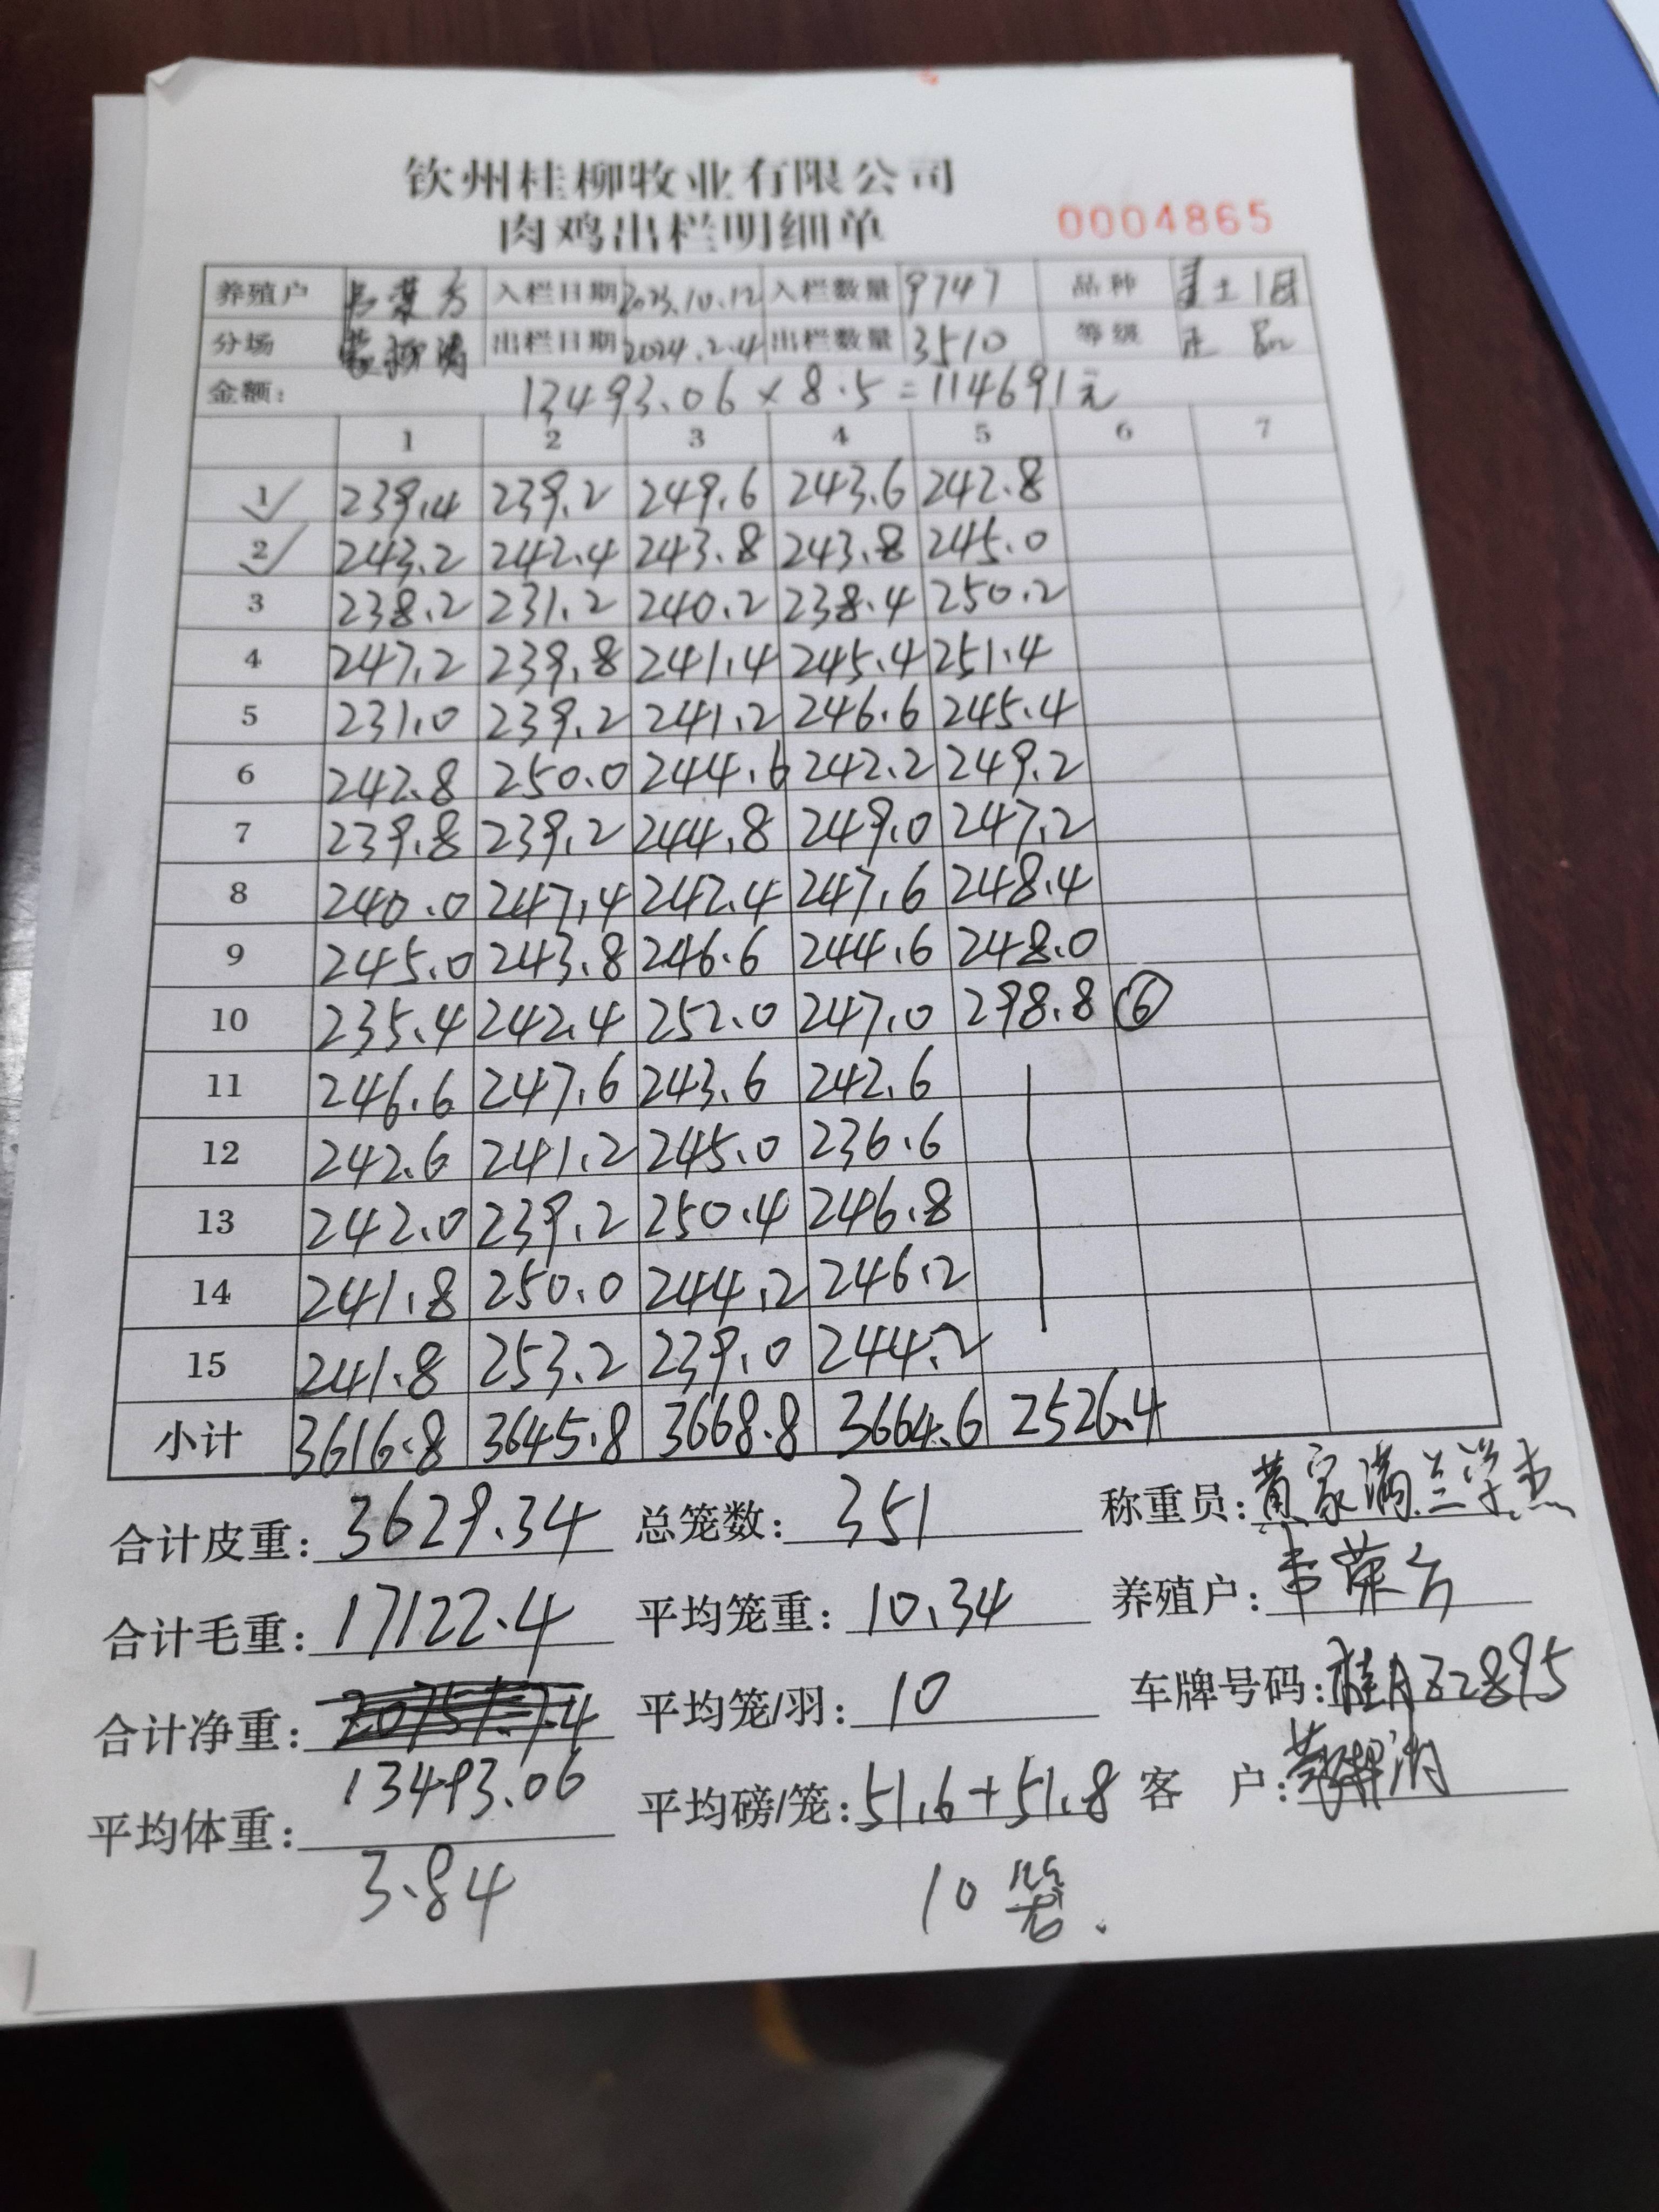 钦州桂柳牧业有限公司
肉鸡出栏明细单 0004865
养殖户 韦荣方 入栏日期 2023.10.12 入栏数量 9747 品种 土
分场 出栏日期 2024.2.4 出栏数量 3510 等级 正
金额: 13493.06×8.5=114691元
1 2 3 4 5 6 7
1 239.4 239.2 249.6 243.6 242.8
2 243.2 242.4 243.8 243.8 245.0
3 238.2 231.2 240.2 238.4 250.2
4 247.2 239.8 241.4 245.4 251.4
5 231.0 239.2 241.2 246.6 245.4
6 242.8 250.0 244.6 242.2 249.2
7 239.8 239.2 244.8 249.0 247.2
8 240.0 247.4 242.4 247.6 248.4
9 245.0 243.8 246.6 244.6 248.0
10 235.4 242.4 252.0 247.0 298.8 ⑥
11 246.6 247.6 243.6 242.6
12 242.6 241.2 245.0 236.6
13 242.0 239.2 250.4 246.8
14 241.8 250.0 244.2 246.2
15 241.8 253.2 239.0 244.2
小计 3616.8 3645.8 3668.8 3664.6 2526.4
合计皮重: 3629.34 总笼数: 351 称重员: 黄家满 兰学杰
合计毛重: 17122.4 平均笼重: 10.34 养殖户: 韦荣方
合计净重: 20751.74 平均笼/羽: 10 车牌号码: 桂AZ2895
13493.06
平均体重: 平均磅/笼: 51.6+51.8 客 户:
3.84 10笼.